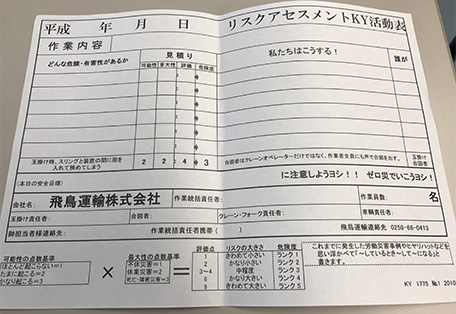 平成 年 月 日 リスクアセスメントKY活動表
作業内容
見積り
私たちはこうする！
誰が
どんな危険・有害性があるか
可能性 重大性 評価 危険度
玉掛け時、スリングと装置の間に指を入れて挟めてしまう
2 2 4 3
合図者はクレーンオペレーターだけではなく、作業者全員にも声で合図を出す。
玉掛け
合図者
(本日の安全目標)
に注意しようヨシ！！ ゼロ災でいこうヨシ！
会社名: 飛鳥運輸株式会社
作業統括責任者:
作業員数: 名
玉掛け責任者:
合図者:
クレーン・フォーク責任者:
車輌責任者:
御担当者様連絡先:
作業統括責任者携帯 ( )
飛鳥運輸連絡先 0258-66-0413
可能性の点数基準
ほとんど起こらない=1
たまに起こる=2
かなり起こる=3
×
重大性の点数基準
不休災害=1
休業災害=2
死亡・障害災害=3
=
評価点 リスクの大きさ 危険度
1 きわめて小さい ランク1
2 かなり小さい ランク2
3～4 中程度 ランク3
6 かなり大きい ランク4
9 きわめて大きい ランク5
これまでに発生した労働災害事例やヒヤリハットなどを
思い浮かべて「～しているとき～して～になる」と
書きます。
KY 1775 №1 2010